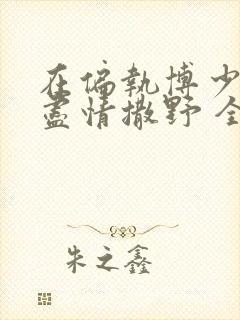 在偏執博少
盡情撒野 全
朱之鑫